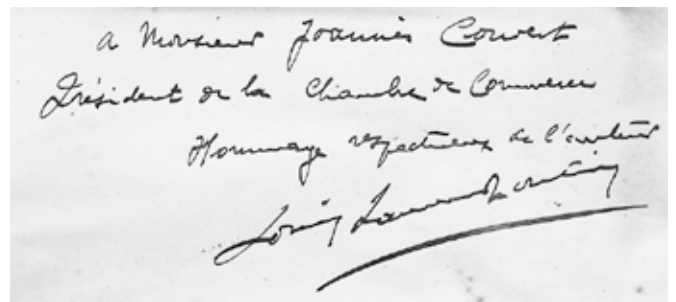 A Monsieur Joannès Convert
Président de la Chambre de Commerce
Hommage respectueux de l'auteur
Louis